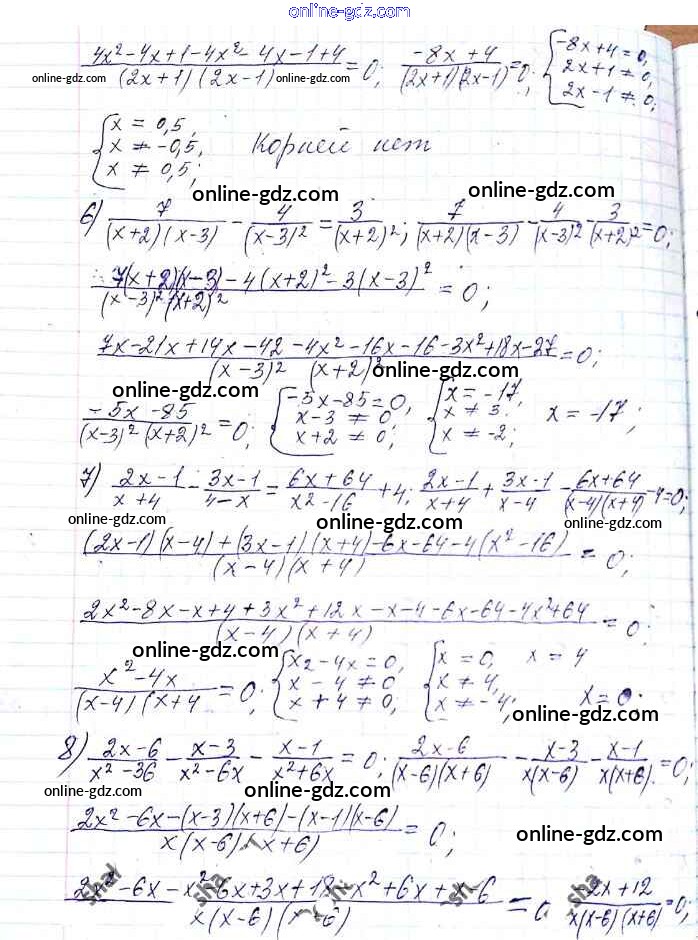 online-gdz.com
(4x²-4x+1-4x²-4x-1+4)/((2x+1)(2x-1))=0; (-8x+4)/((2x+1)(2x-1))=0; {-8x+4=0, 2x+1≠0, 2x-1≠0;
online-gdz.com online-gdz.com online-gdz.com
{x = 0,5, x ≠ -0,5, x ≠ 0,5; Корней нет
online-gdz.com online-gdz.com
6) 7/((x+2)(x-3)) - 4/(x-3)² = 3/(x+2)²; 7/((x+2)(x-3)) - 4/(x-3)² - 3/(x+2)² = 0;
online-gdz.com
(7(x+2)(x-3)-4(x+2)²-3(x-3)²)/((x-3)²(x+2)²) = 0;
online-gdz.com
(7x-21x+14x-42-4x²-16x-16-3x²+18x-27)/((x-3)² (x+2)²)=0;
online-gdz.com online-gdz.com
(-5x-85)/((x-3)²(x+2)²)=0; {-5x-85=0, x-3≠0, x+2≠0; {x=-17, x≠3, x≠-2; x=-17;
online-gdz.com
7) (2x-1)/(x+4) - (3x-1)/(4-x) = (6x+64)/(x²-16) + 4; (2x-1)/(x+4) + (3x-1)/(x-4) - (6x+64)/((x-4)(x+4)) - 4=0;
online-gdz.com online-gdz.com online-gdz.com
((2x-1)(x-4)+(3x-1)(x+4)-6x-64-4(x²-16))/((x-4)(x+4)) = 0;
online-gdz.com
(2x²-8x-x+4+3x²+12x-x-4-6x-64-4x²+64)/((x-4)(x+4))=0;
online-gdz.com
(x²-4x)/((x-4)(x+4=0; {x2-4x=0, x-4≠0, x+4≠0; {x=0, x=4 x≠4, x≠-4; x=0.
online-gdz.com
8) (2x-6)/(x²-36) - (x-3)/(x²-6x) - (x-1)/(x²+6x) = 0; (2x-6)/((x-6)(x+6)) - (x-3)/(x(x-6)) - (x-1)/(x(x+6))=0;
online-gdz.com online-gdz.com
(2x²-6x-(x-3)(x+6)-(x-1)(x-6))/(x(x-6)(x+6)) = 0;
online-gdz.com
(2x²-6x-x²-6x+3x+18-x²+6x+x-6)/(x(x-6)(x+6)) = 0 (-2x+12)/(x(x-6)(x+6))=0;